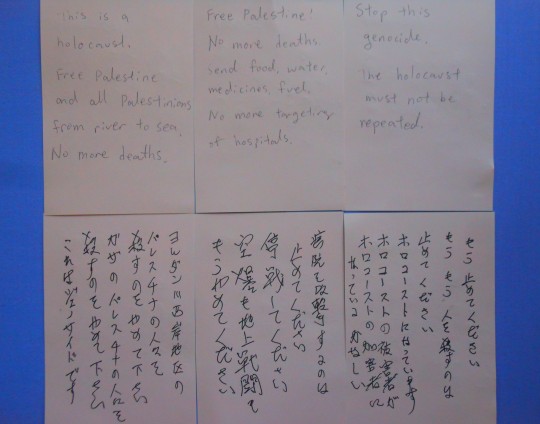 This is a
holocaust.
Free Palestine
and all Palestinians
from river to sea.
No more deaths.
Free Palestine!
No more deaths
send food, water,
medicines, fuel.
No more targeting
of hospitals.
Stop this
genocide.
The holocaust
must not be
repeated.
ヨルダン川西岸地区の
パレスチナの人々を
殺すのをやめて下さい
ガザのパレスチナの人々を
殺すのをやめて下さい
これはジェノサイドです
病院を攻撃するのは
止めてください
停戦してください
空爆も地上戦闘も
もうやめてください
もう止めてください
もうもう人を殺すのは
止めてください
ホロコーストになっています
ホロコーストの被害者が
ホロコーストの加害者に
なっている